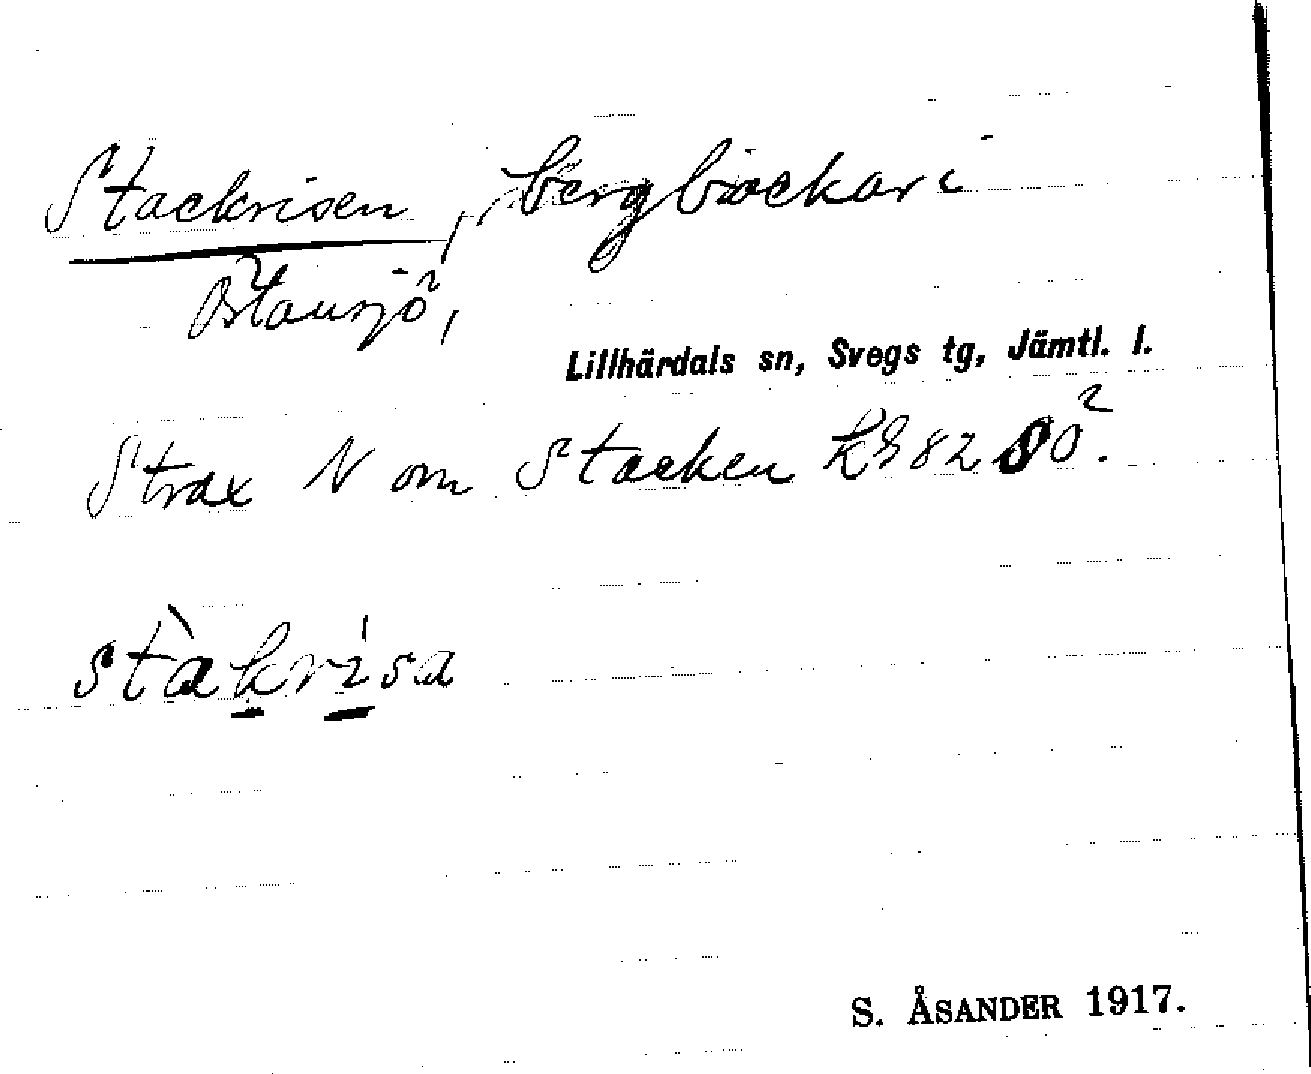 Stackrisen, bergbackar i
Östansjö,
Lillhärdals sn, Svegs tg, Jämtl. l.
Strax N om Stacken kg 82 SO².
stàkrísa
S. ÅSANDER 1917.